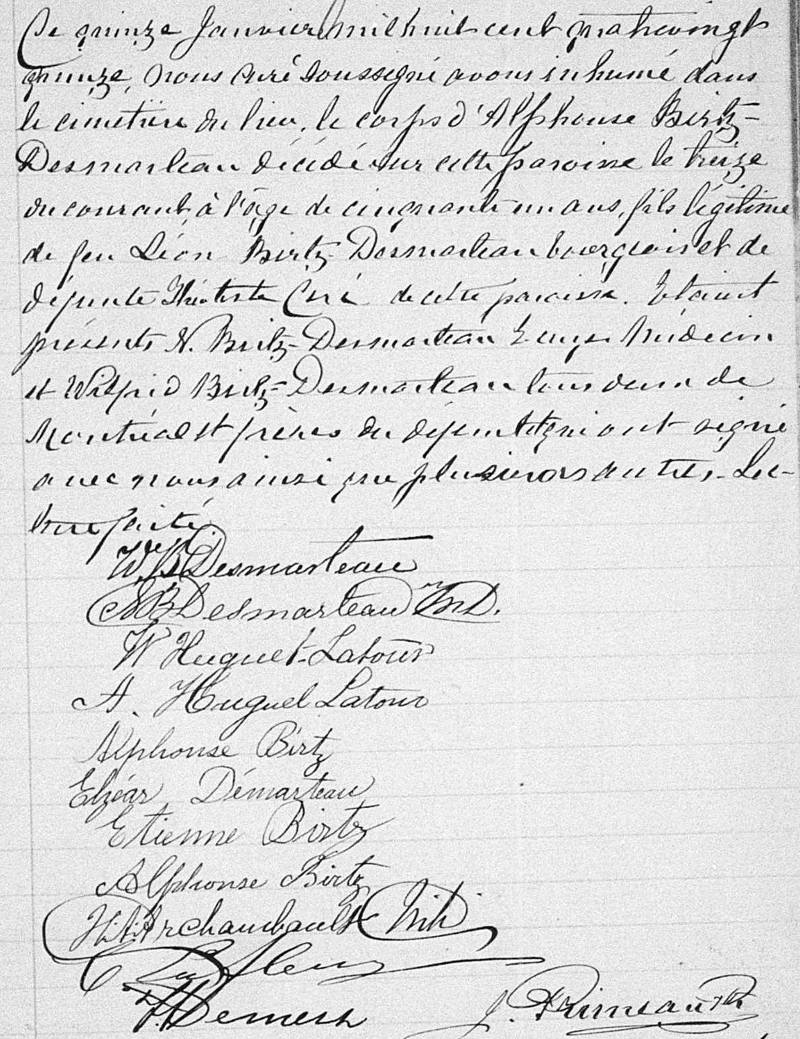 Ce quinze Janvier mil huit cent quatrevingt
quinze, nous curé soussigné avons inhumé dans
le cimetière du lieu, le corps d'Alphonse Birtz-
Desmarteau décédé sur cette paroisse le treize
du courant, à l'âge de cinquante un ans, fils légitime
de feu Léon Birtz-Desmarteau bourgeois et de
défunte Théotiste Curé de cette paroisse. Etaient
présents N. Birtz-Desmarteau Médecin
et Wilfrid Birtz-Desmarteau tous deux de
Montréal et frères du défunt et qui ont signé
avec nous ainsi que plusieurs autres. Lec-
ture faite.
W. B Desmarteau
NB Desmarteau M.D.
W Huguet-Latour
A. Huguet Latour
Alphonse Birtz
Elzéar Démarteau
Etienne Birtz
Alphonse Birtz
Archambault
J. Primeau Ptr